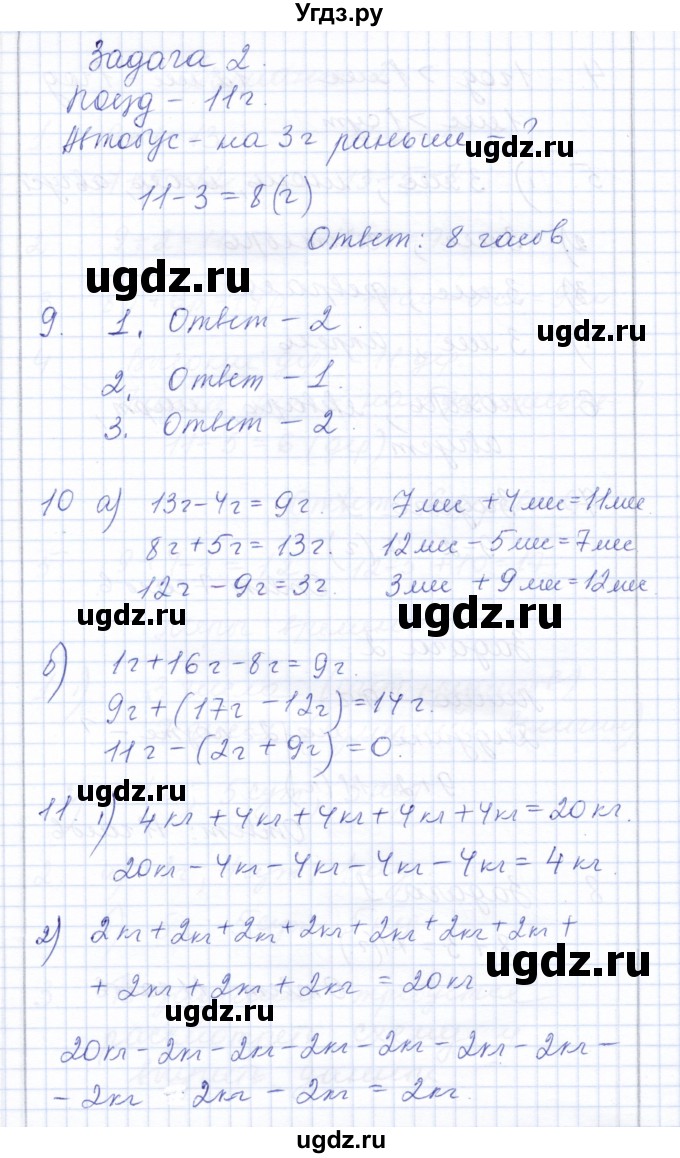 Угдз.ру
Задача 2.
Поезд – 11ч.
Автобус – на 3ч раньше – ?
11 - 3 = 8 (ч)
Ответ: 8 часов.
ugdz.ru
ugdz.ru
9. 1. Ответ – 2
2. Ответ – 1.
3. Ответ – 2
10 а) 13ч - 4ч = 9ч. 7мес + 4мес = 11мес
8ч + 5ч = 13ч. 12мес - 5мес = 7мес
12ч - 9ч = 3ч. 3мес + 9мес = 12мес.
ugdz.ru
ugdz.ru
б) 1ч + 16ч - 8ч = 9ч.
9ч + (17ч - 12ч) = 14ч.
11ч - (2ч + 9ч) = 0.
ugdz.ru
11. 1) 4кг + 4кг + 4кг + 4кг + 4кг = 20кг.
20кг - 4кг - 4кг - 4кг - 4кг = 4кг
2) 2кг + 2кг + 2кг + 2кг + 2кг + 2кг + 2кг +
+ 2кг + 2кг + 2кг = 20кг
ugdz.ru
ugdz.ru
20кг - 2кг - 2кг - 2кг - 2кг - 2кг - 2кг -
- 2кг - 2кг - 2кг = 2кг.
ugdz.ru